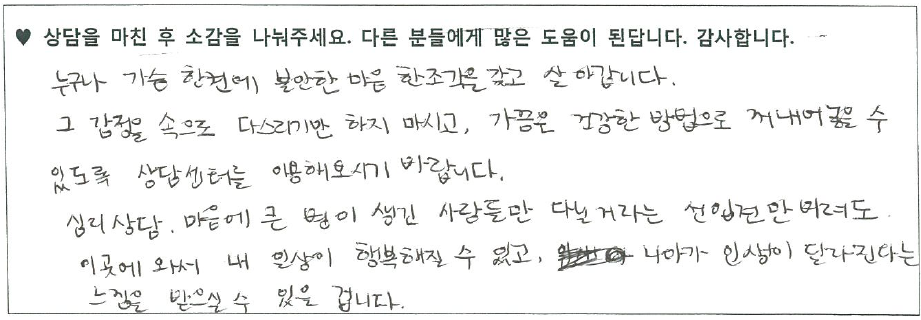 ♥ 상담을 마친 후 소감을 나눠주세요. 다른 분들에게 많은 도움이 된답니다. 감사합니다.
누구나 가슴 한켠에, 불안한 마음 한조각을 갖고 살아갑니다.
그 감정을 속으로 다스리기만 하지 마시고, 가끔은 건강한 방법으로 꺼내어놓을 수
있도록 상담센터를 이용해보시기 바랍니다.
심리상담. 마음에 큰 병이 생긴 사람들만 다닐거라는 선입견만 버려도
이곳에 와서 내 일상이 행복해질 수 있고, 나아가 인생이 달라진다는
느낌을 받으실 수 있을 겁니다.